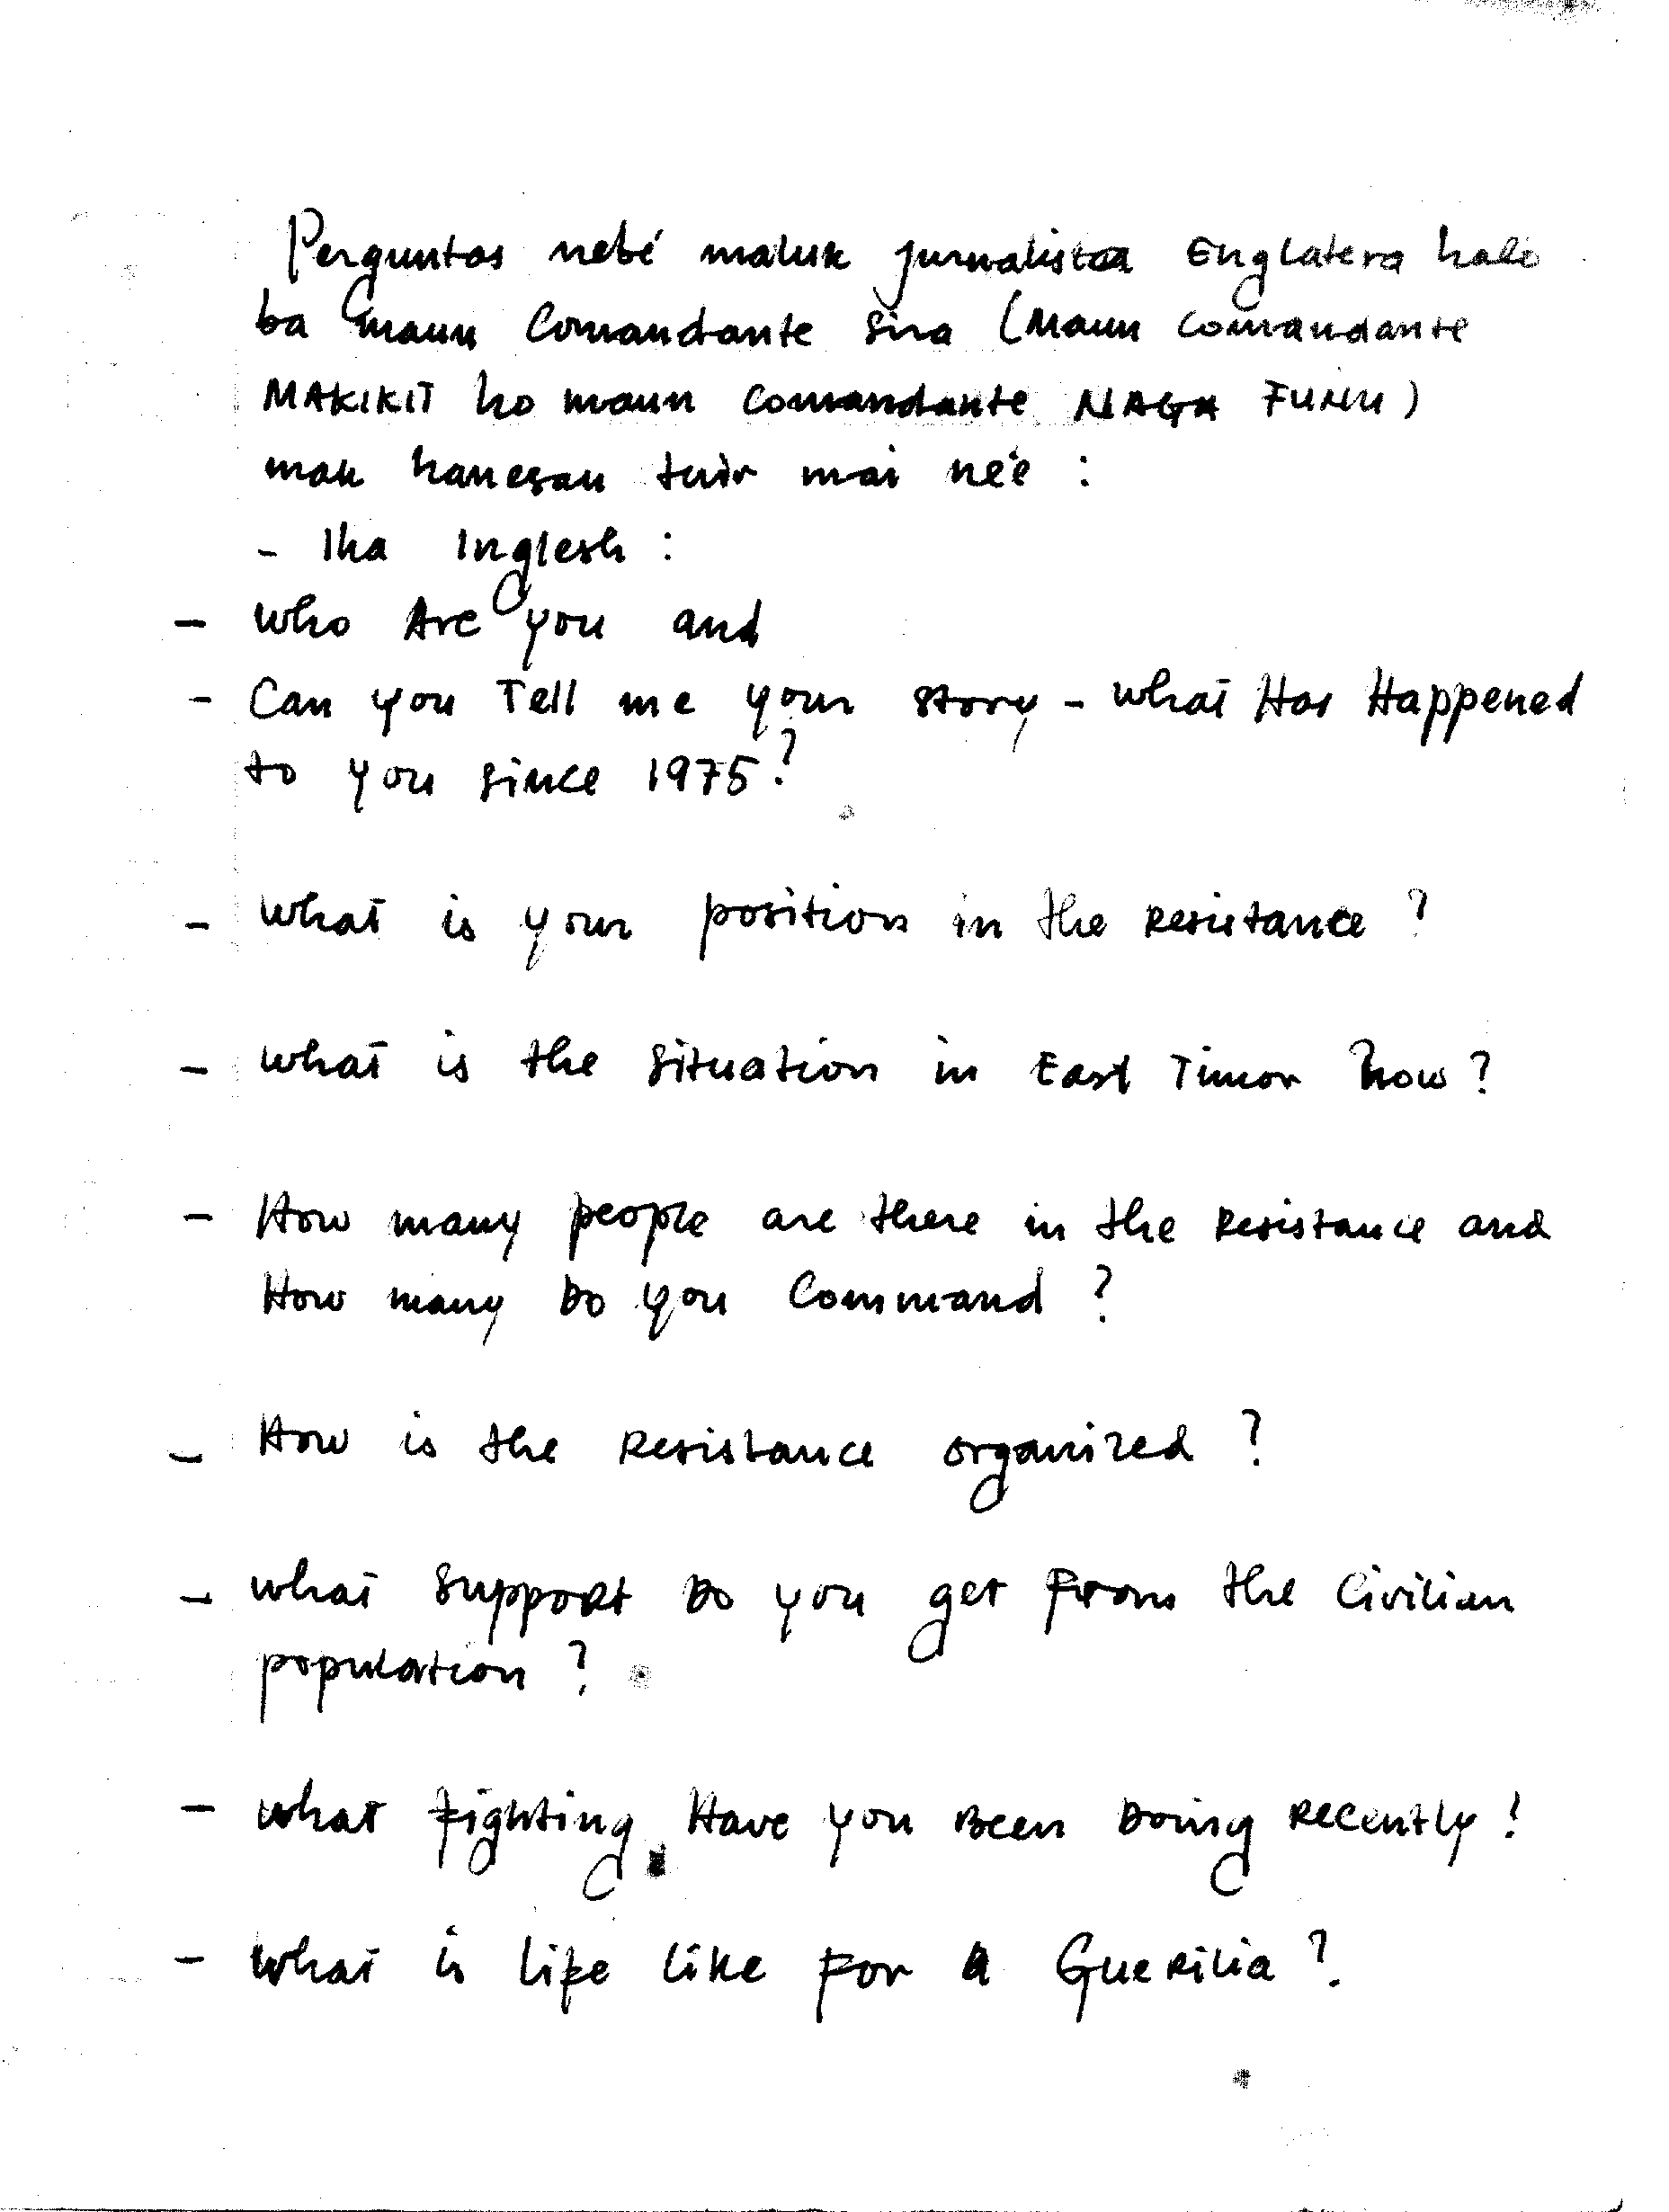 Perguntas nebé maluk jurnalista Englatera halo
ba maun Comandante sira (Maun comandante
MAKIKIT ho maun comandante NAGA FUNU)
mak hanesan tuir mai ne'e :
- Iha Inglesh :
- Who Are you and
- Can you Tell me your story - what Has Happened
to you since 1975?
- What is your position in the Resistance ?
- What is the Situation in East Timor now ?
- How many people are there in the Resistance and
How many Do you Command ?
- How is the Resistance organized ?
- What Support Do you get From the Civilian
population ?
- What fighting Have you Been Doing Recently !
- What is life like For A Guerilia ?